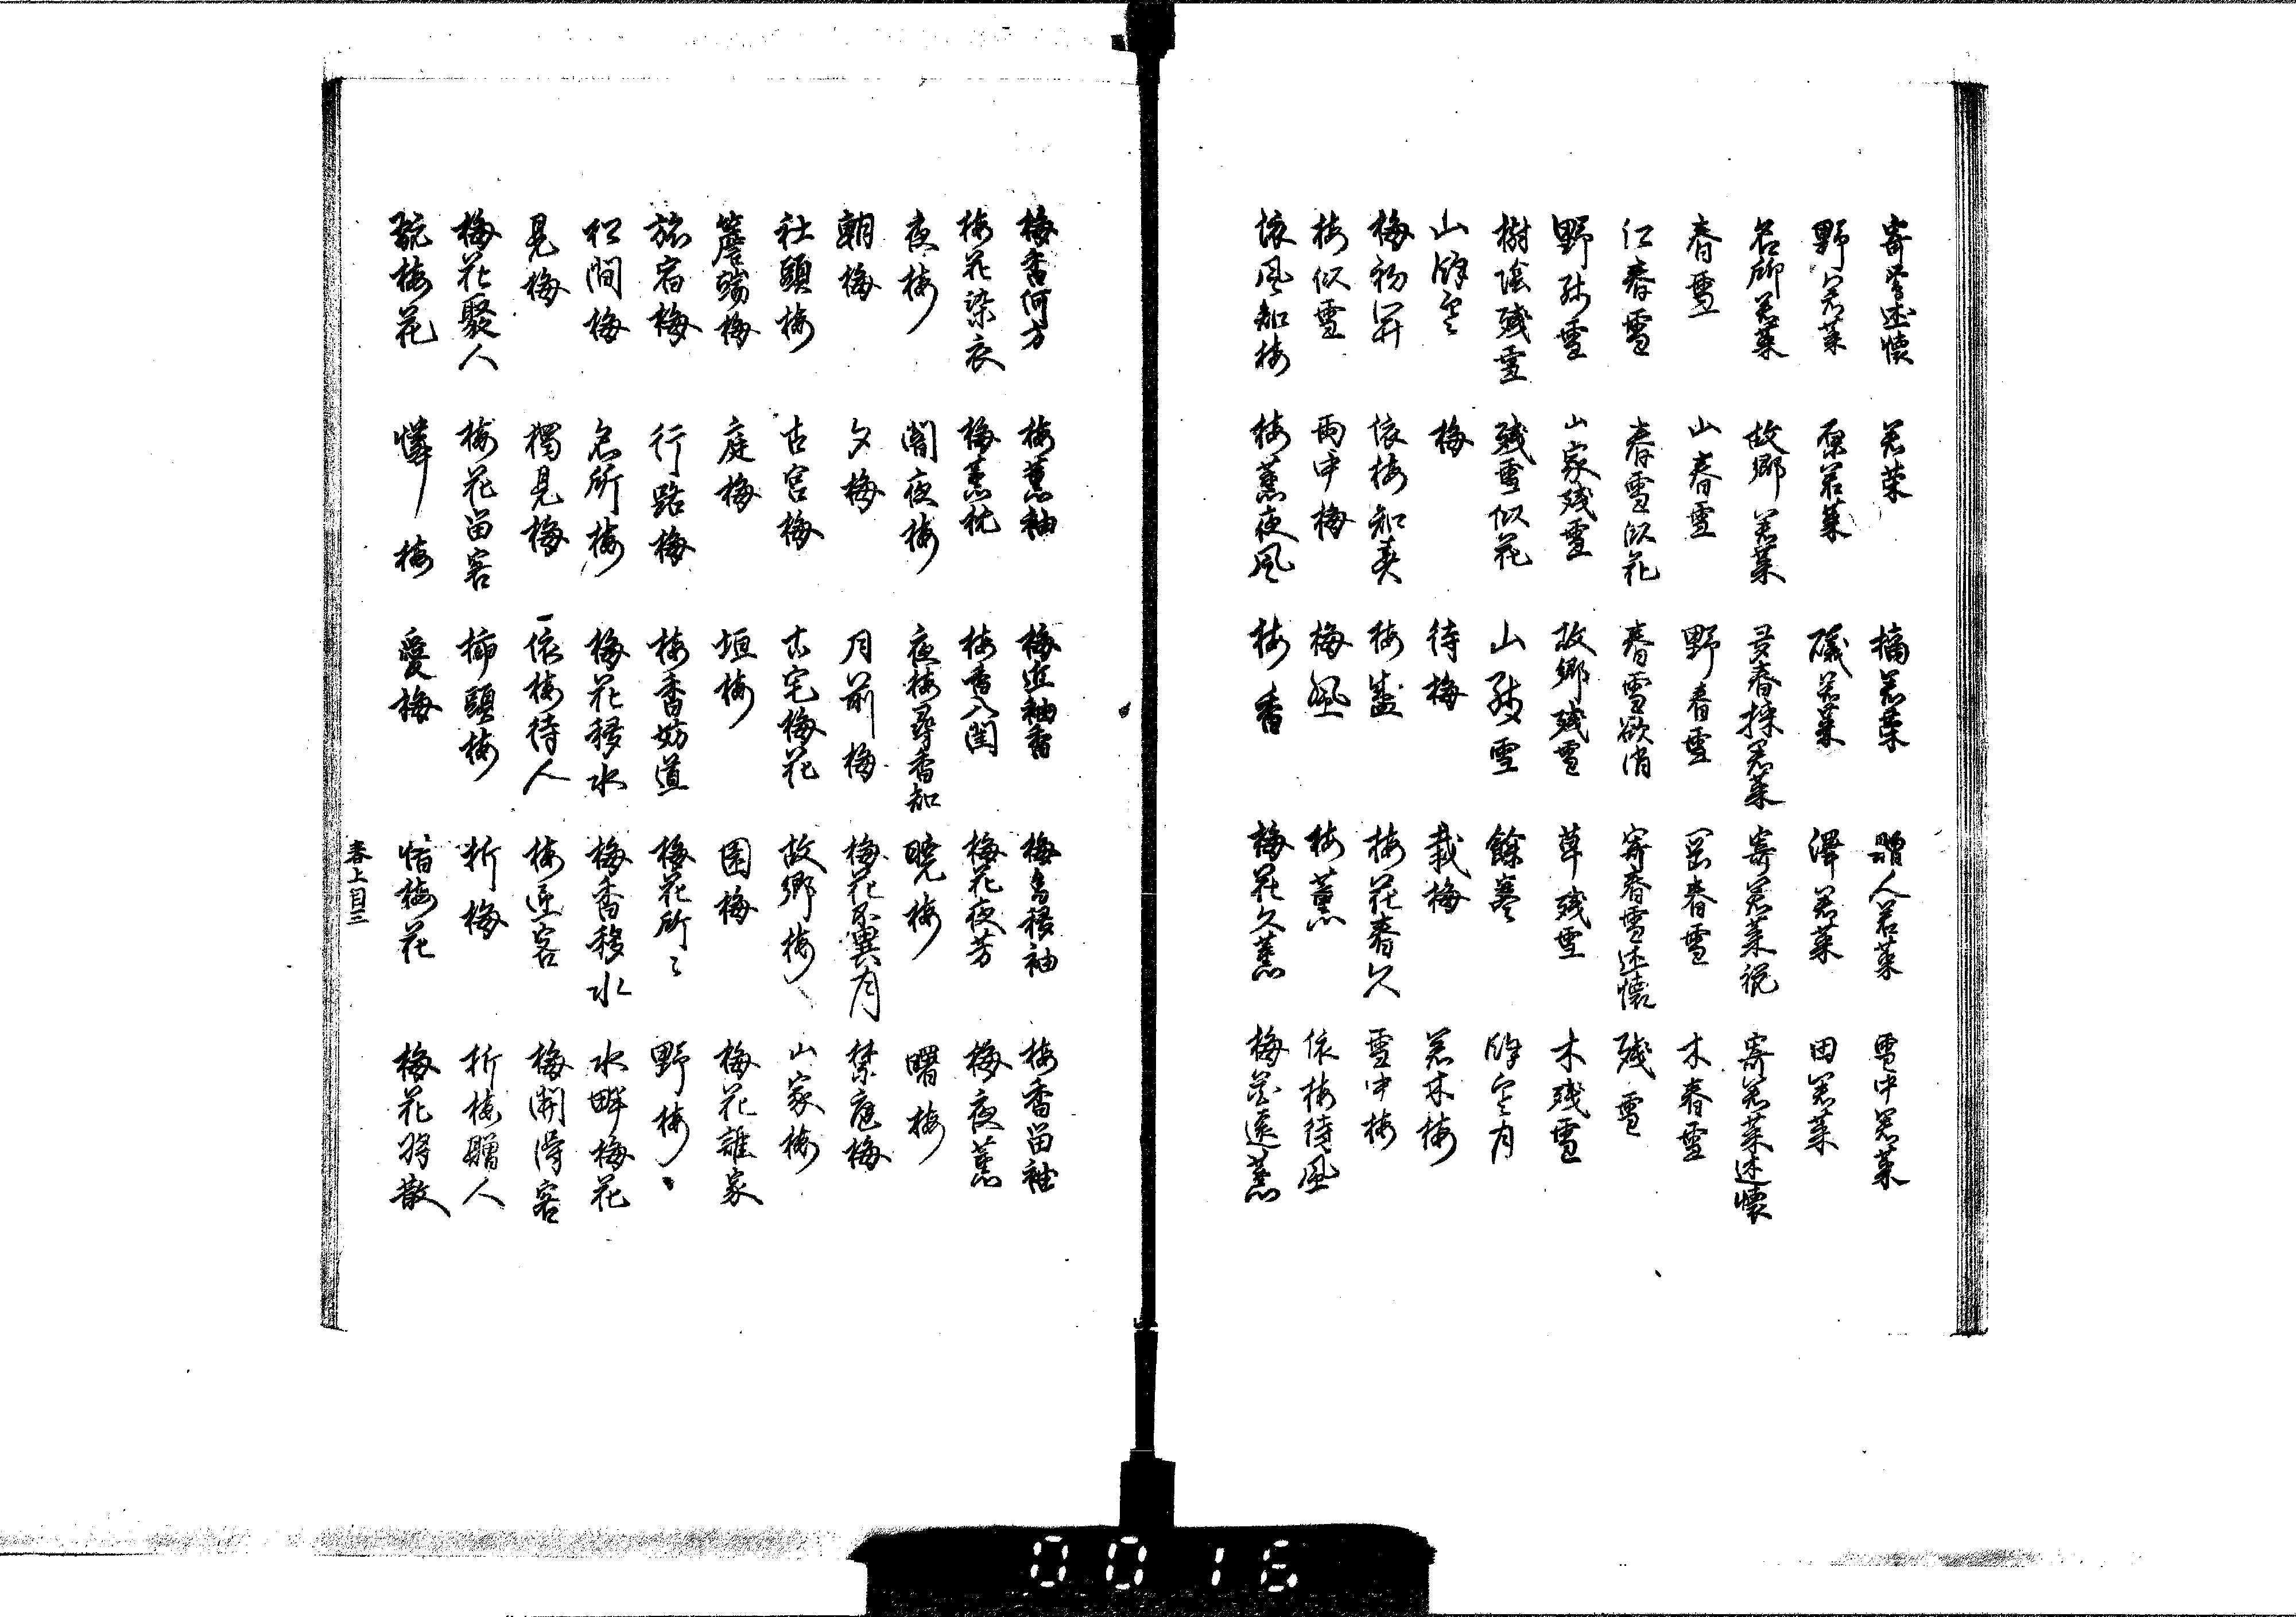 寄鶯述懐 若菜 摘若菜 贈人若菜 雪中若菜
野若菜 原若菜 礒若菜 澤若菜 田若菜
名所若菜 故郷若菜 尋春採若菜 寄若菜祝 寄若菜述懐
春雪 山春雪 野春雪 岡春雪 木春雪
江春雪 春雪似花 春雪欲消 寄春雪述懐 残雪
野残雪 山家残雪 故郷残雪 草残雪 木残雪
樹陰残雪 残雪似花 山残雪 餘寒 餘寒月
山餘寒 梅 待梅 栽梅 若木梅
梅初開 依梅知春 梅盛 梅花春久 雪中梅
梅似雪 雨中梅 梅風 梅薫 依梅待風
依風知梅 梅薫夜風 梅香 梅花久薫 梅花遠薫
梅香何方 梅薫袖 梅近袖香 梅香移袖 梅香留袖
梅花染衣 梅薫枕 梅香入閨 梅花夜芳 梅夜薫
夜梅 闇夜梅 夜梅尋香知 暁梅 曙梅
朝梅 夕梅 月前梅 梅花不異月 禁庭梅
社頭梅 古宮梅 古宅梅花 故郷梅 山家梅
簷端梅 庭梅 垣梅 園梅 梅花誰家
旅宿梅 行路梅 梅香妨道 梅花所〻 野梅
松間梅 名所梅 梅花移水 梅香移水 水畔梅花
見梅 獨見梅 依梅待人 梅逢客 梅開得客
梅花聚人 梅花留客 挿頭梅 折梅 折梅贈人
翫梅花 憐梅 愛梅 惜梅花 梅花将散
春上目三
0016